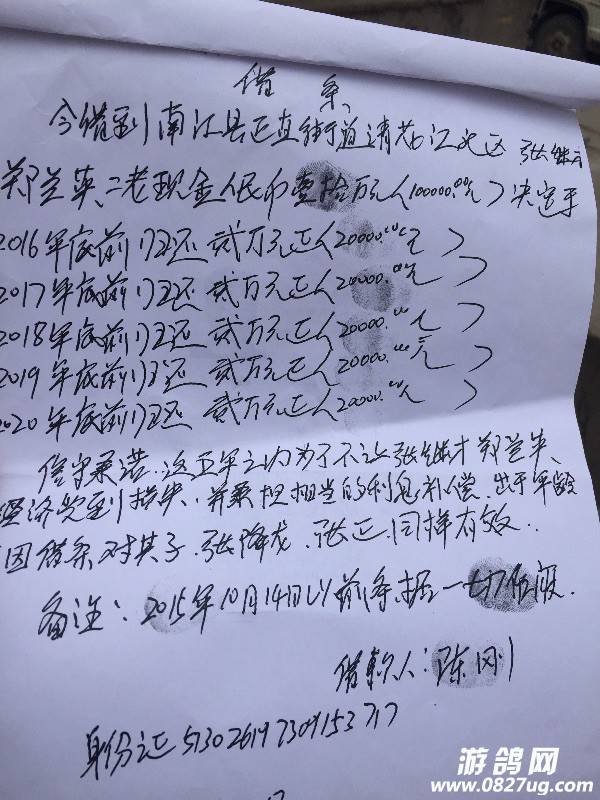 借条
今借到南江县正直街道请花江社区 张继才
郑兰英、二老现金人民币壹拾万元(100000.00元)决定于
2016年底前归还贰万元正(20000.00元)
2017年底前归还贰万元正(20000.00元)
2018年底前归还贰万元正(20000.00元)
2019年底前归还贰万元正(20000.00元)
2020年底前归还贰万元正(20000.00元)
信守承诺.这五年之内为了不让张继才郑兰英、
经济受到损失.并承担相当的利息补偿.出于年龄
因借条对其子.张降龙.张正.同样有效.
备注:2015年10月14日以前条据一切作废.
借款人:陈刚
身份证
游鸽网
www.0827ug.com